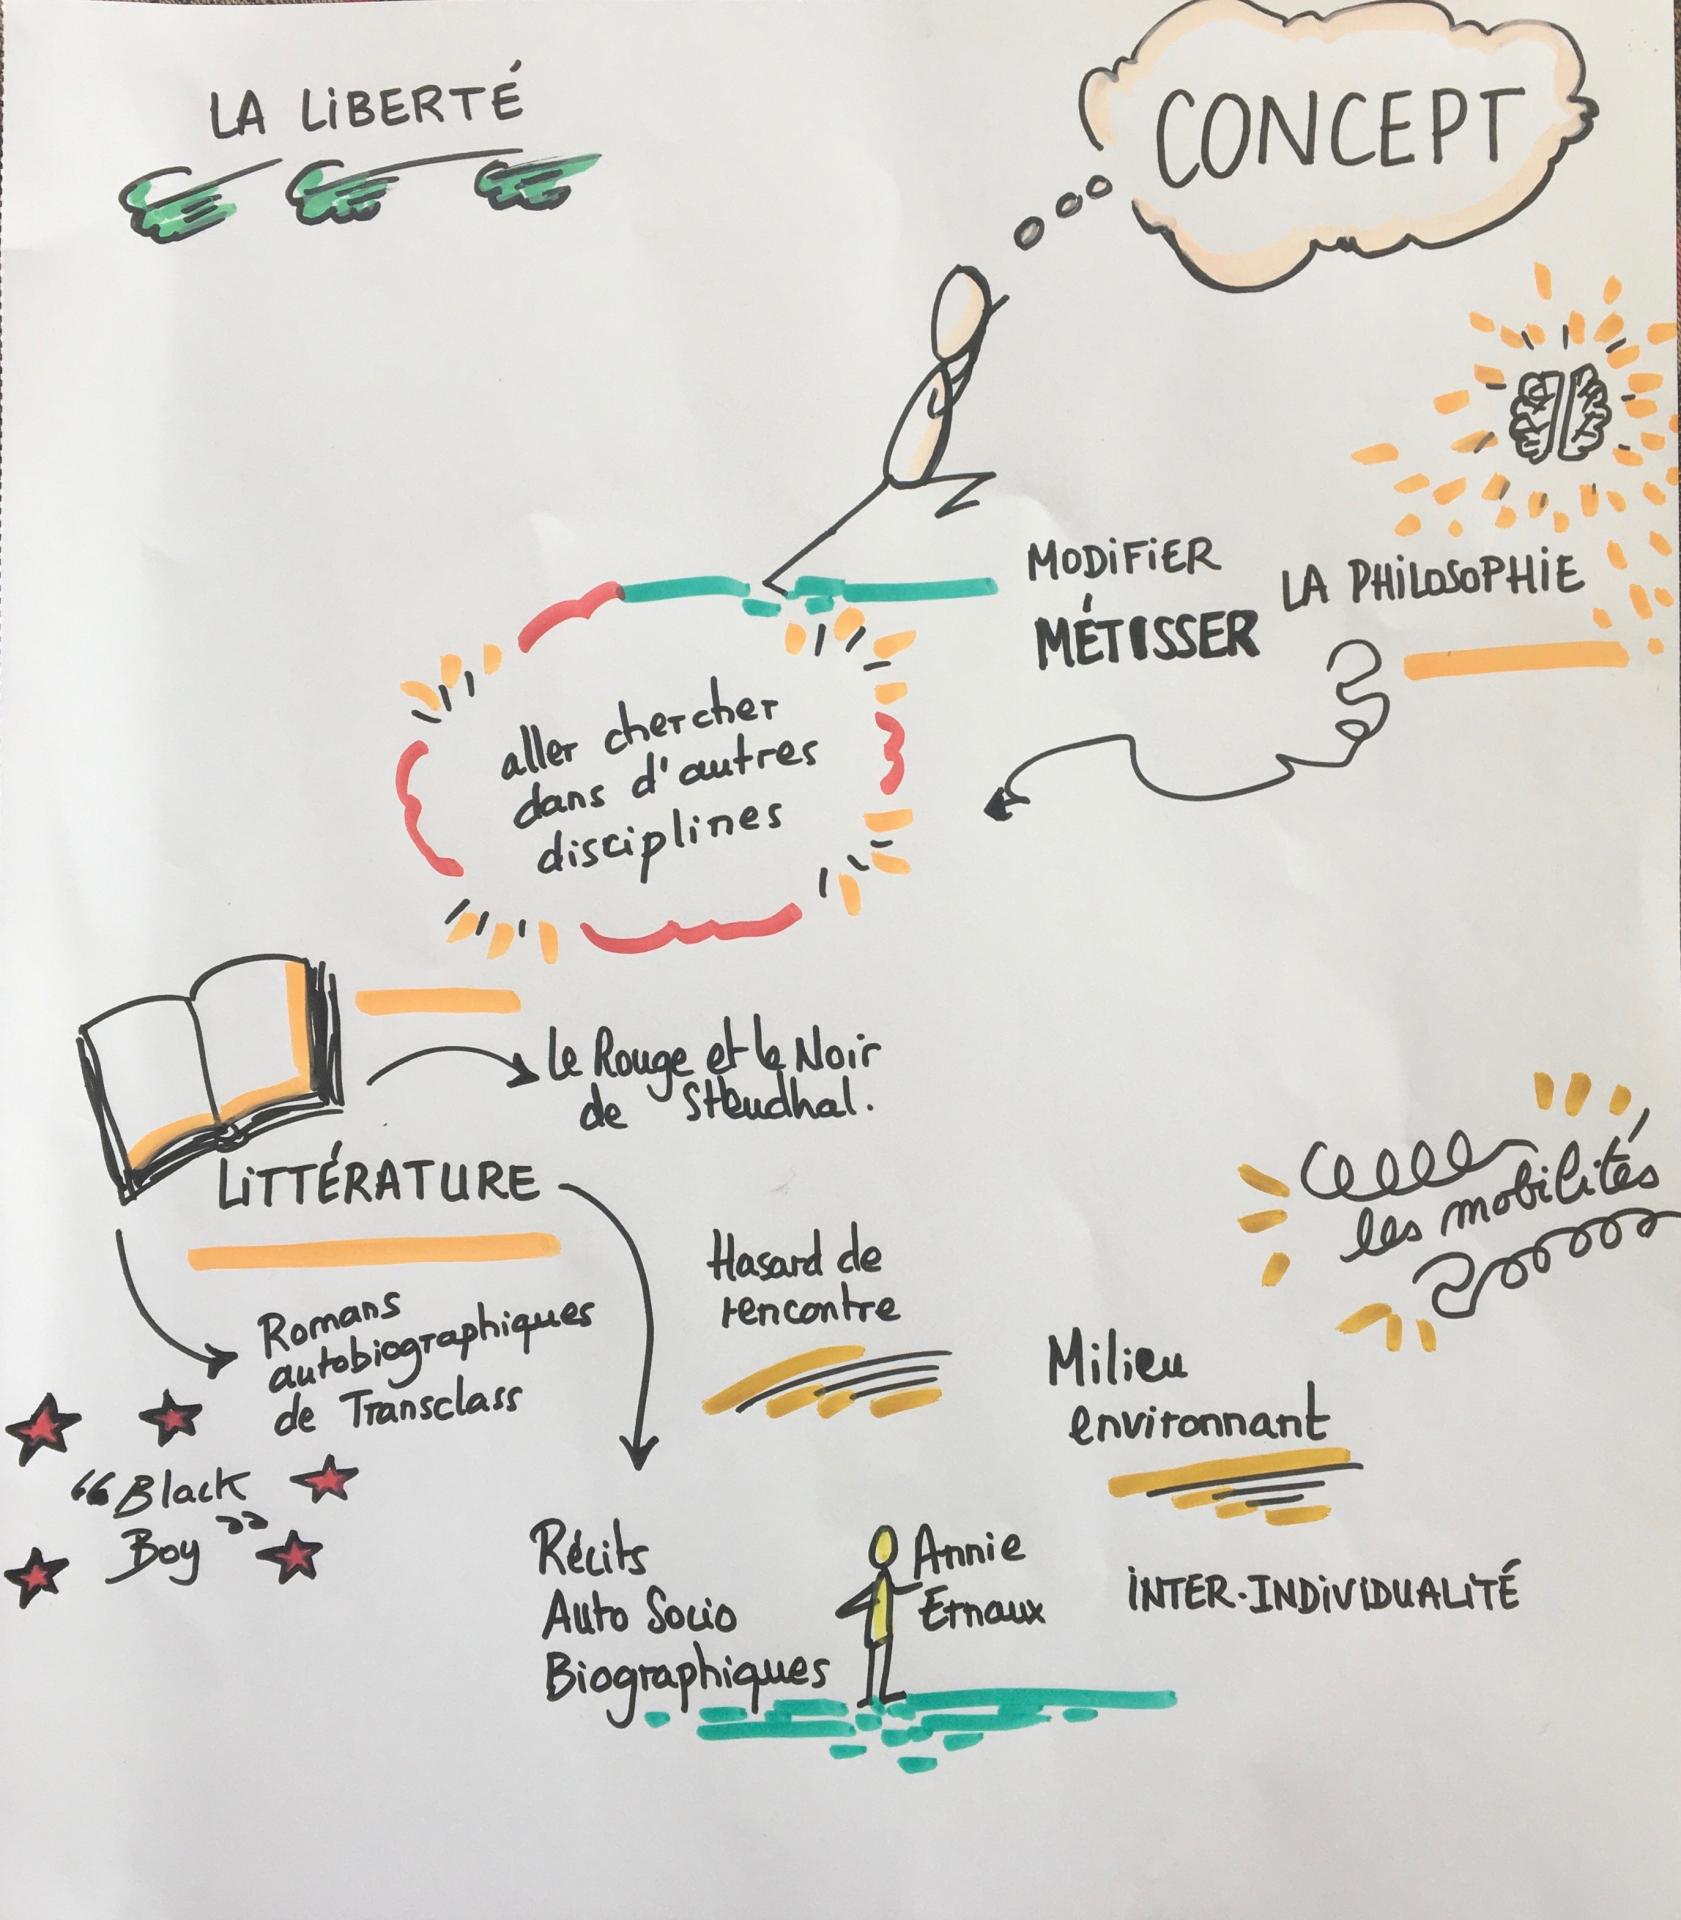 LA LiBERTÉ
CONCEPT
MODiFiER
MÉTISSER
LA PHiLOSOPHiE
aller chercher
dans d'autres
disciplines
le Rouge et le Noir
de Stheudhal.
LiTTÉRATURE
Romans
autobiographiques
de Transclass
“Black
Boy”
Hasard de
rencontre
les mobilités
Milieu
environnant
Récits
Auto Socio
Biographiques
Annie
Ernaux
iNTER-INDiViDUALiTÉ